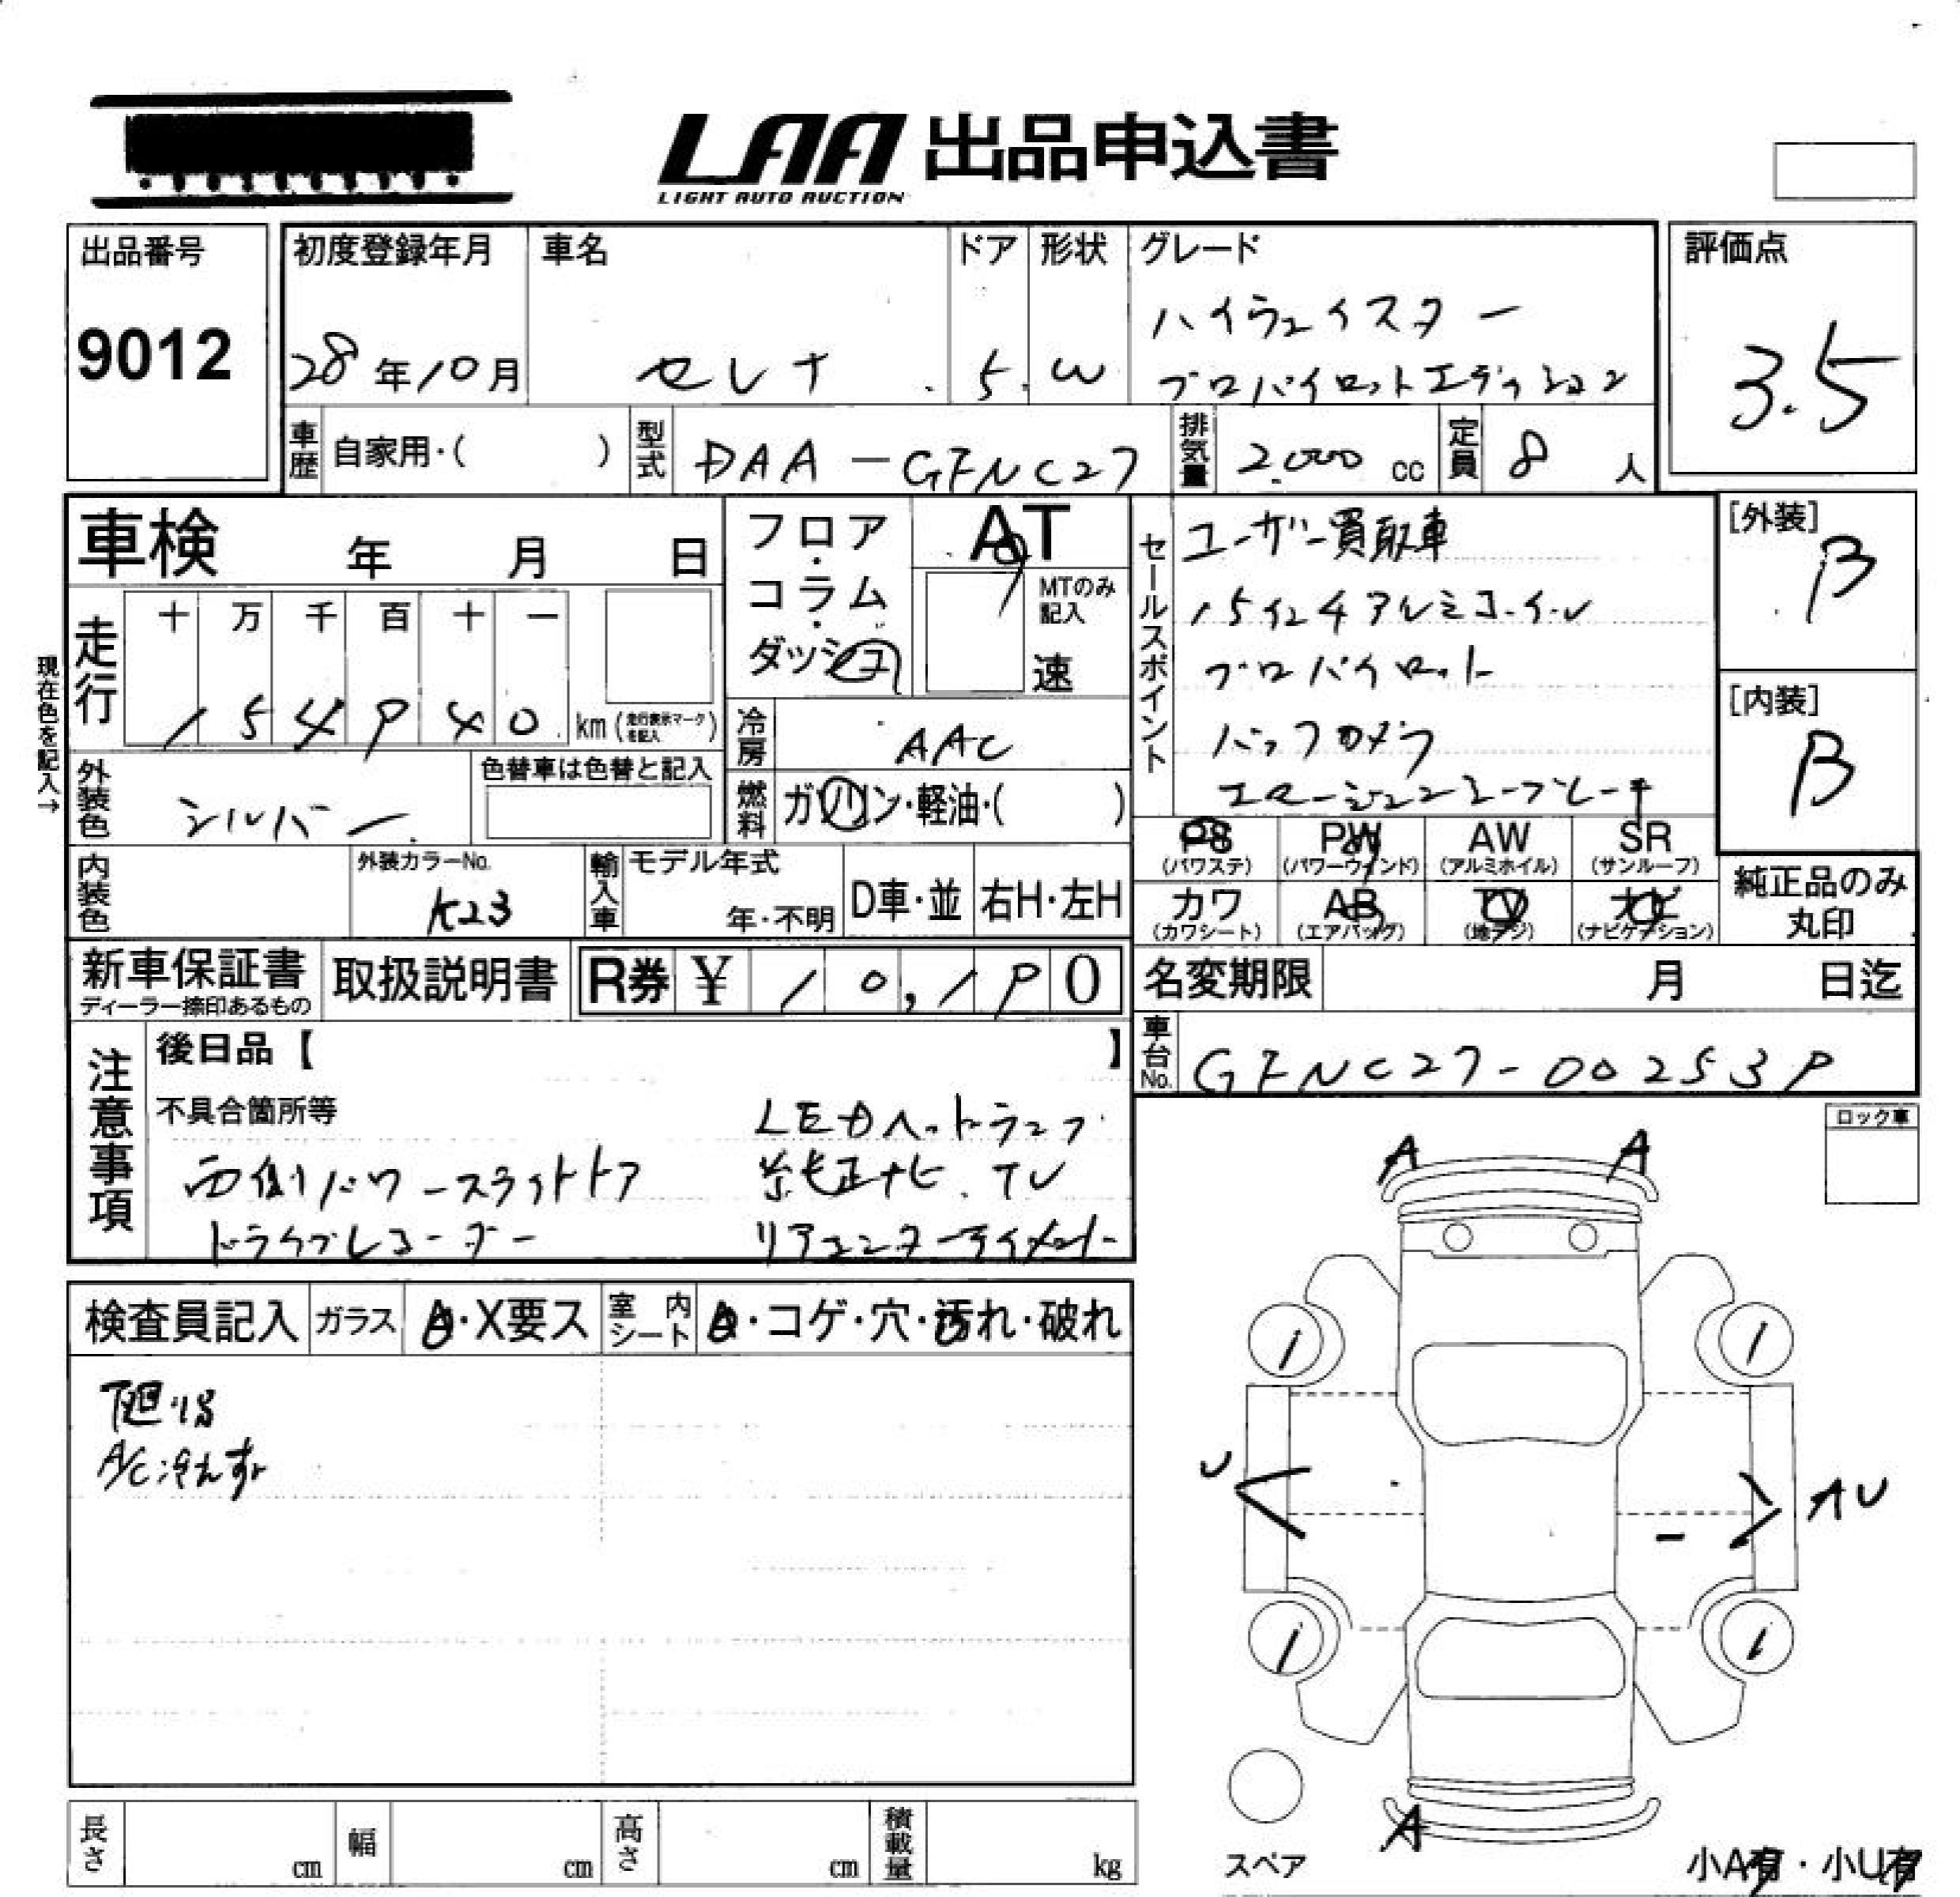 LAA 出品申込書
LIGHT AUTO AUCTION
出品番号
9012
初度登録年月
28年10月
車名
セレナ
ドア
5
形状
W
グレード
ハイウェイスター
プロパイロットエディション
評価点
3.5
車歴
自家用・( )
型式
DAA-GFNC27
排気量
2,000 cc
定員
8 人
車検 年 月 日
フロア・コラム・ダッシュ
AT
MTのみ記入
速
セールスポイント
ユーザー買取車
15インチアルミホイール
プロパイロット
バックカメラ
エマージェンシーブレーキ
[外装]
B
[内装]
B
現在色を記入→
走行
十 万 千 百 十 一
1 5 4 9 4 0 km (走行表示マークを記入)
冷房
AAC
外装色
シルバー
色替車は色替と記入
燃料
ガソリン・軽油・( )
PS (パワステ)
PW (パワーウインド)
AW (アルミホイル)
SR (サンルーフ)
カワ (カワシート)
AB (エアバッグ)
TV (地デジ)
ナビ (ナビゲーション)
純正品のみ丸印
内装色
外装カラーNo.
K23
輸入車
モデル年式
年・不明
D車・並
右H・左H
新車保証書
ディーラー捺印あるもの
取扱説明書
R券 ¥ 10,190
名変期限 月 日迄
車台No.
GFNC27-002539
注意事項
後日品【 】
不具合箇所等
LEDヘッドランプ
両側パワースライドドア
純正ナビ.TV
ドライブレコーダー
リアエンターテイメント
ロック車
検査員記入
ガラス
A・X要ス
室内シート
・コゲ・穴・汚れ・破れ
A/C冷えず
A A
U
AU
A
スペア
小A有・小U有
長さ cm
幅 cm
高さ cm
積載量 kg